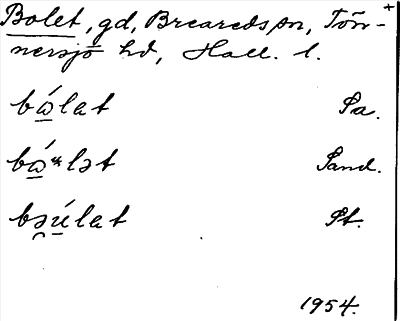 Bolet, gd, Breareds sn, Tön- +
nersjö hd, Hall. l.
bǻlat Sa.
bǻʷlət Sand.
bəúlat St.
1954.